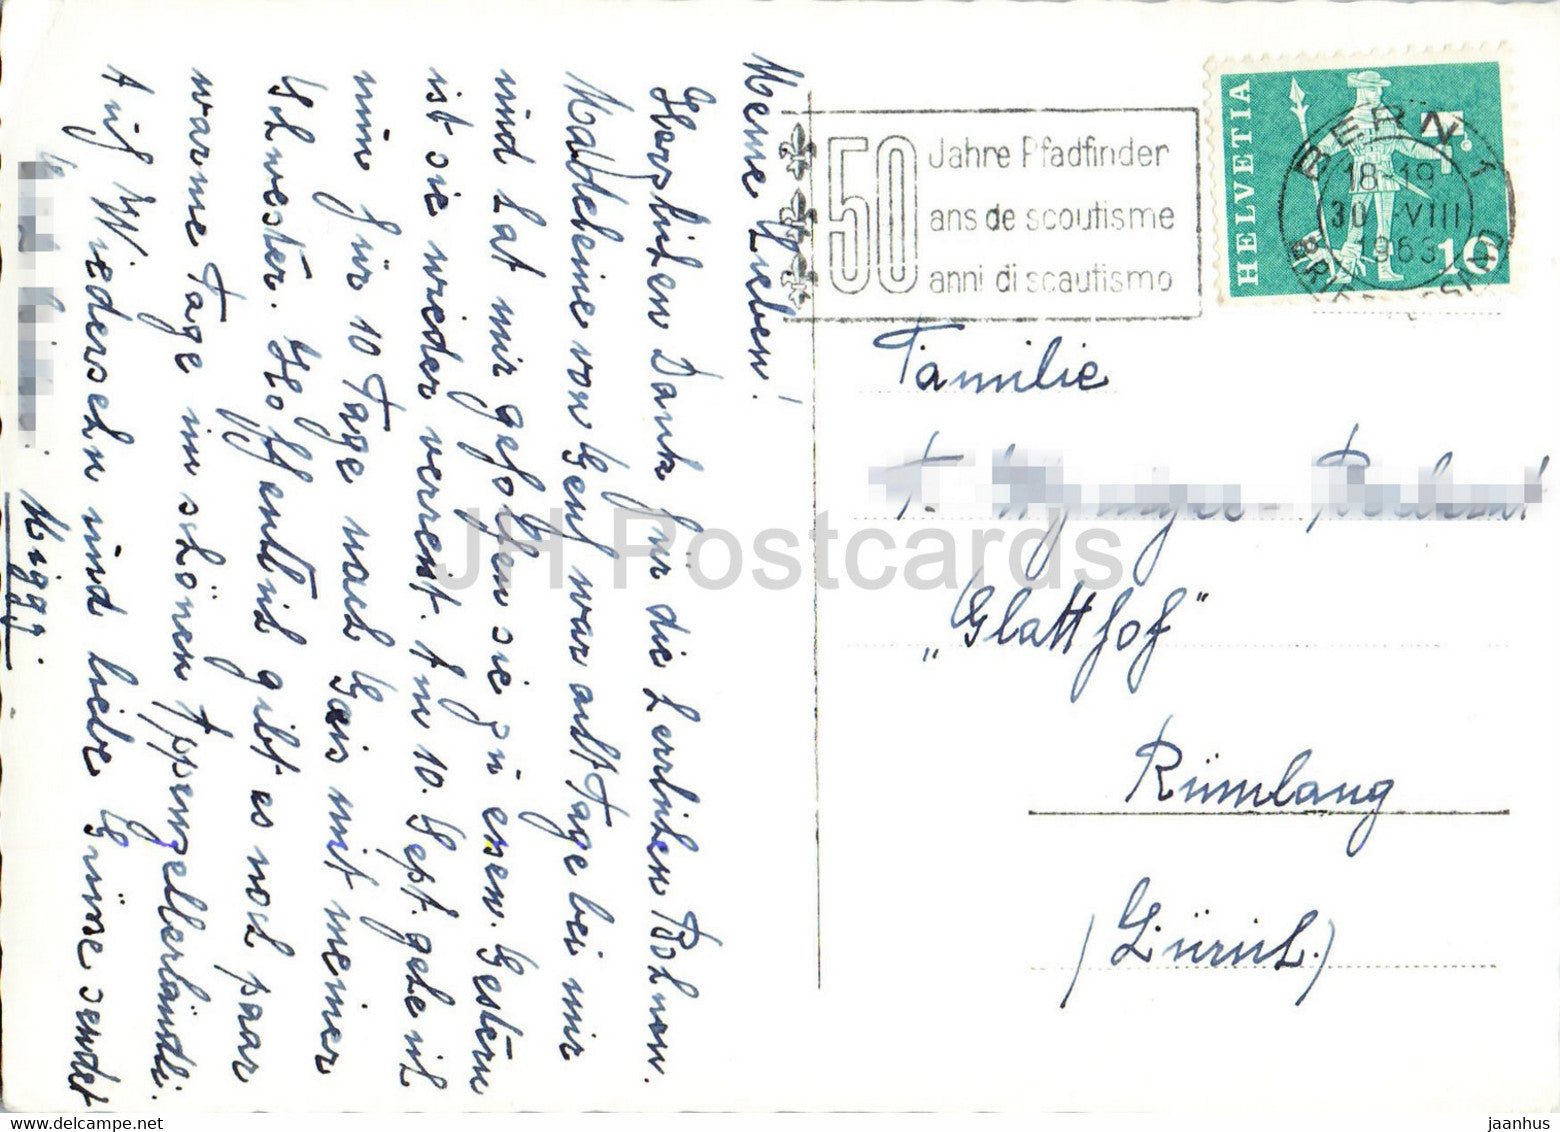 Meine Lieben!
Herzlichen Dank für die herrlichen Bohnen.
Madeleine von Genf war acht Tage bei mir
und hat mir geholfen sie zu essen. Gestern
ist sie wieder verreist. Am 10. Sept. gehe ich
nun für 10 Tage nach Gais mit meiner
Schwester. Hoffentlich gibt es noch paar
warme Tage im schönen Appenzellerländli.
Auf Wiedersehn und liebe Grüsse sendet
Miggi.
50
Jahre Pfadfinder
ans de scoutisme
anni di scautismo
HELVETIA
10
BERN 1
18-19
30. VIII
1963
Familie
„Glatthof"
Rümlang
(Zürich.)
JH Postcards
www.delcampe.net
jaanhus